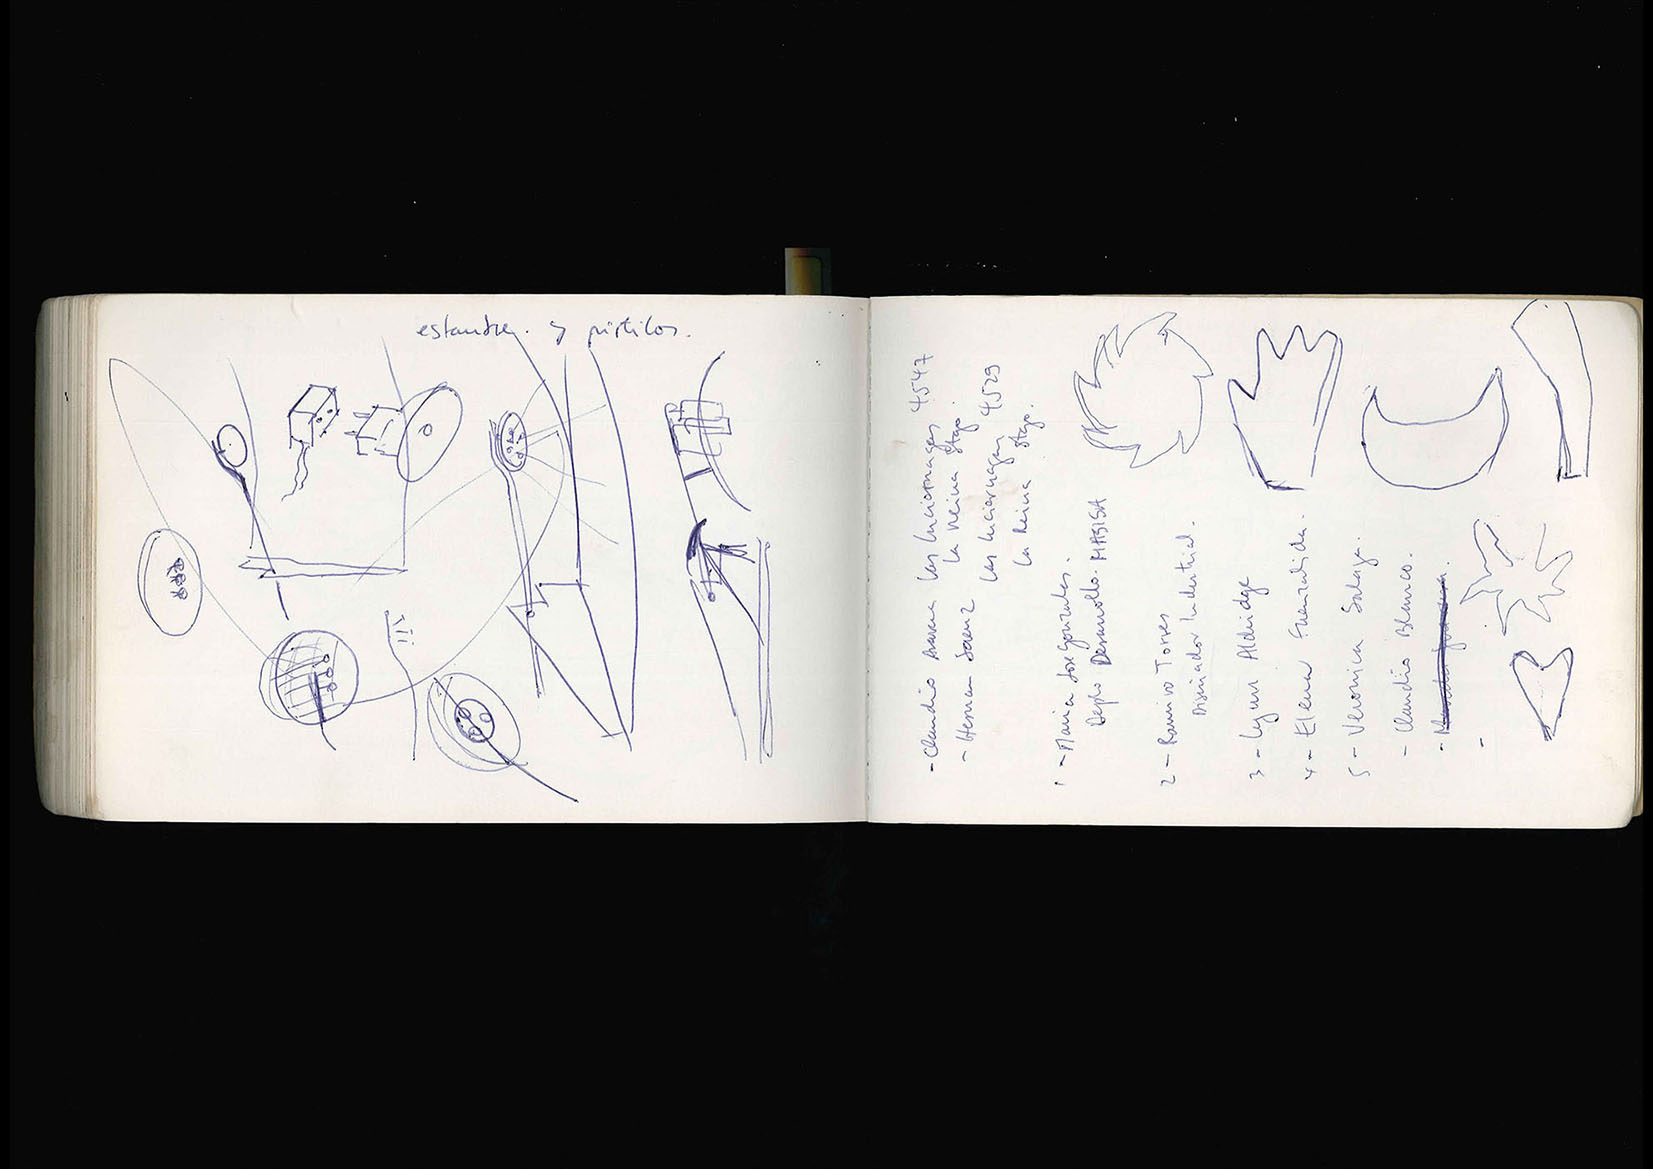 estambres y pistilos.
- Claudio Arava Las Luciernagas 4547
La Reina Stgo.
- Hernan Saenz Las Luciernagas 4529
La Reina Stgo.
1 - Maria Jose Gonzales.
Depto Desarrollo. MASISA
2 - Ramiro Torres
Diseñador Industrial.
3 - Lynn Aldridge
4 - Elena Fuenzalida.
5 - Veronica
- Claudio Blanco.
-
-